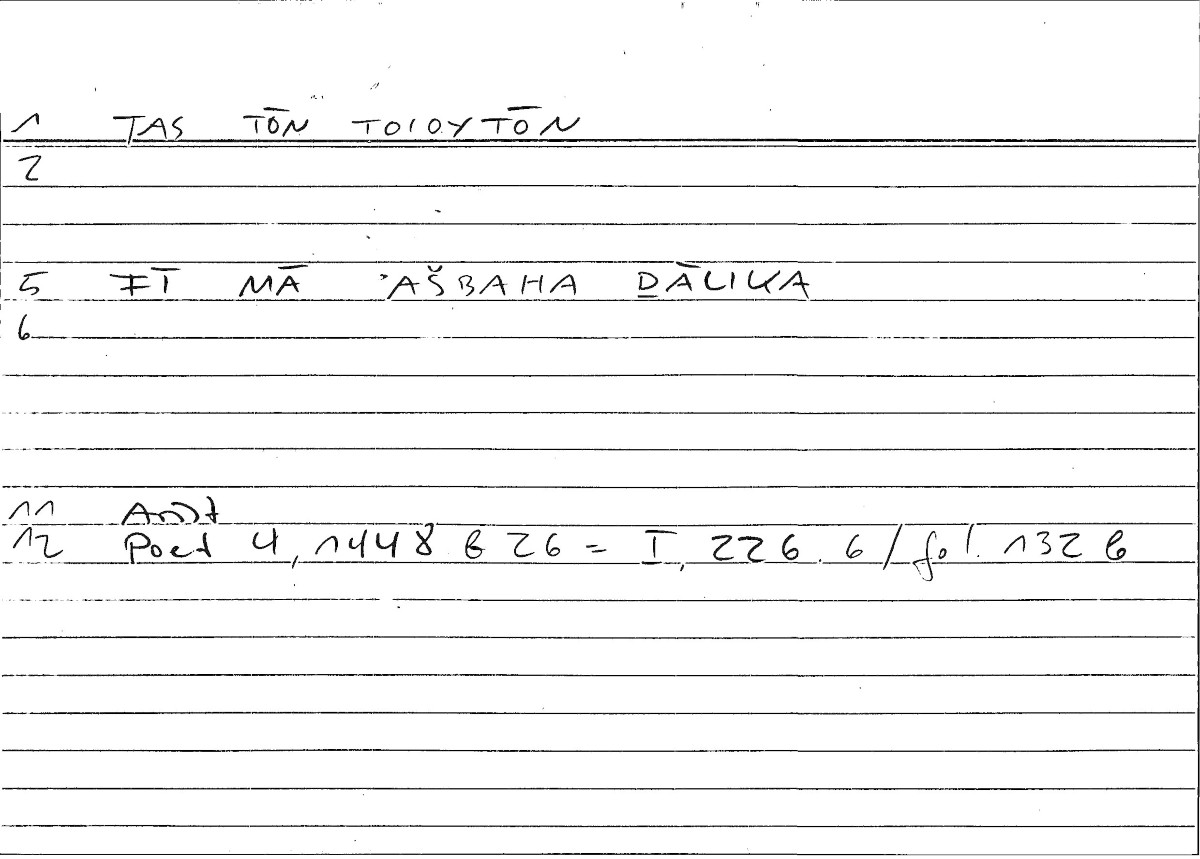 1 TAS TŌN TOIOYTŌN
2
5 FĪ MĀ ʾAŠBAHA ḎĀLIKA
6
11 Arist
12 Poet 4, 1448 b 26 = I, 226.6 / fol. 132 b